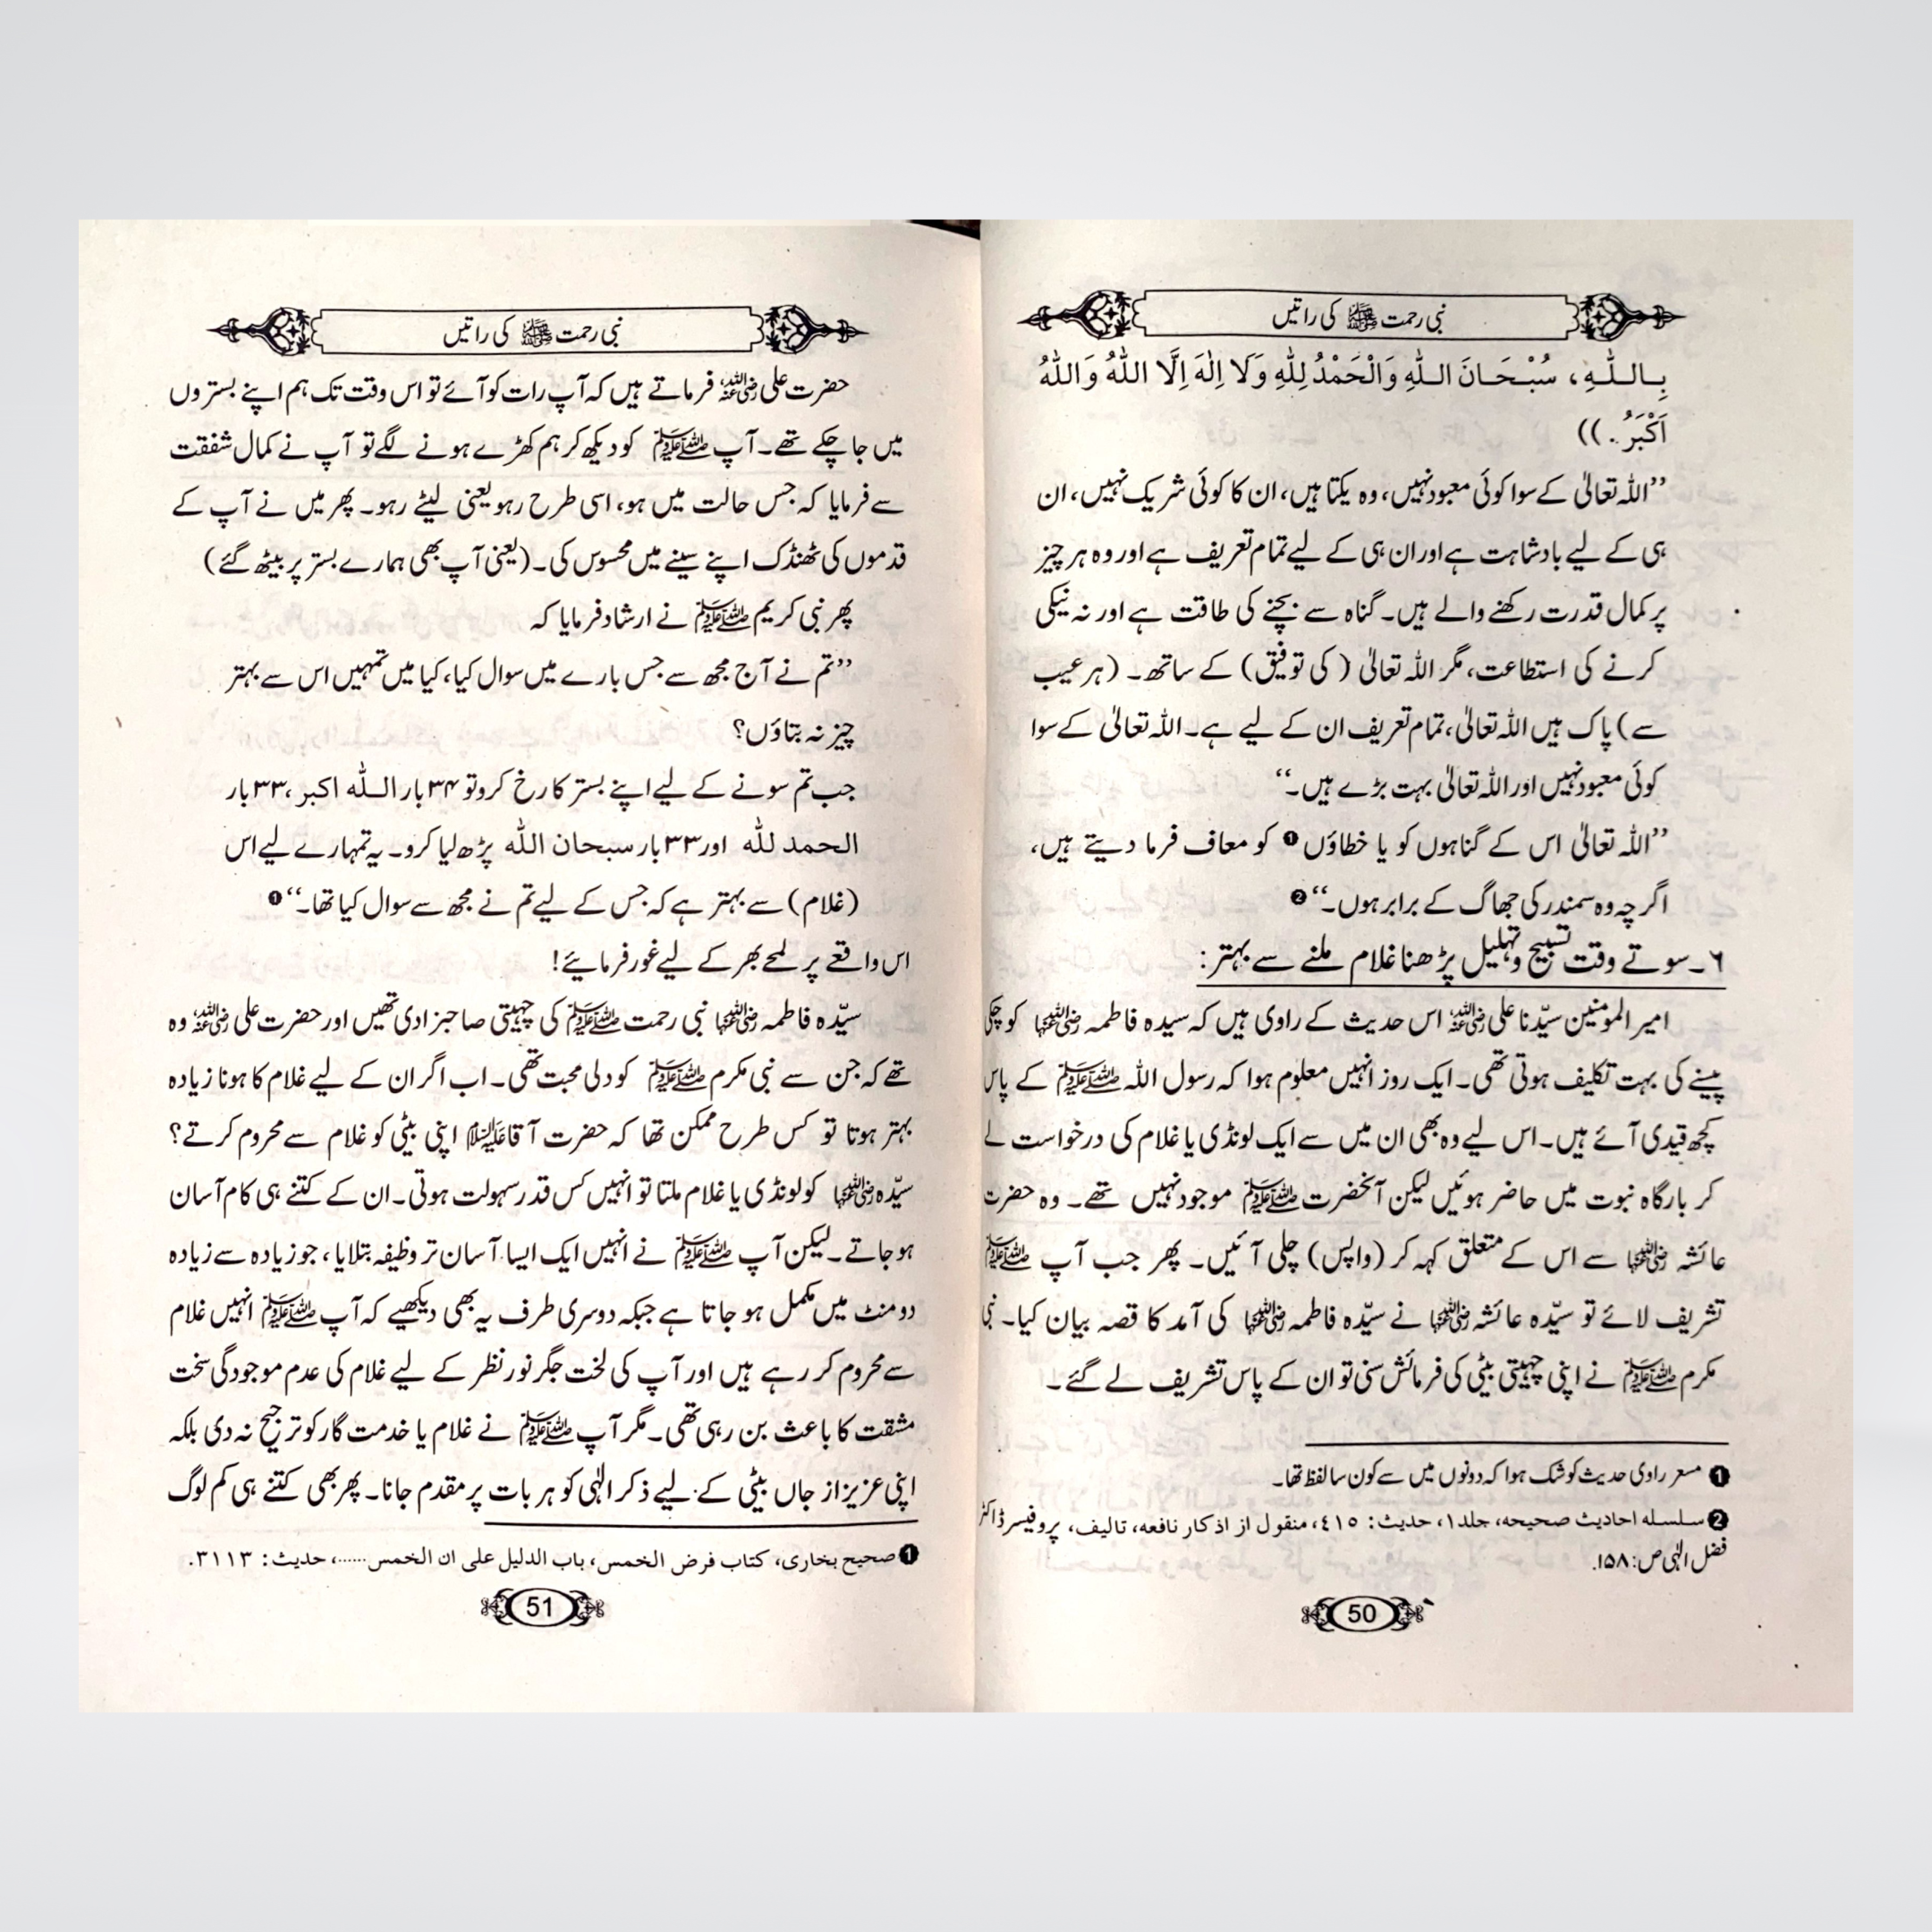 نبی رحمت ﷺ کی راتیں
بِاللّٰهِ، سُبْحَانَ اللّٰهِ وَالْحَمْدُ لِلّٰهِ وَلَا اِلٰهَ اِلَّا اللّٰهُ وَاللّٰهُ
اَكْبَرُ.))
’’اللہ تعالیٰ کے سوا کوئی معبود نہیں، وہ یکتا ہیں، ان کا کوئی شریک نہیں، ان
ہی کے لیے بادشاہت ہے اور ان ہی کے لیے تمام تعریف ہے اور وہ ہر چیز
پر کمال قدرت رکھنے والے ہیں۔ گناہ سے بچنے کی طاقت ہے اور نہ نیکی
کرنے کی استطاعت، مگر اللہ تعالیٰ (کی توفیق) کے ساتھ۔ (ہر عیب
سے) پاک ہیں اللہ تعالیٰ، تمام تعریف ان کے لیے ہے۔ اللہ تعالیٰ کے سوا
کوئی معبود نہیں اور اللہ تعالیٰ بہت بڑے ہیں۔‘‘
’’اللہ تعالیٰ اس کے گناہوں کو یا خطاؤں ❶ کو معاف فرما دیتے ہیں،
اگرچہ وہ سمندر کی جھاگ کے برابر ہوں۔‘‘ ❷
۶۔ سوتے وقت تسبیح و تہلیل پڑھنا غلام ملنے سے بہتر:
امیر المومنین سیّدنا علی رضی اللہ عنہ اس حدیث کے راوی ہیں کہ سیدہ فاطمہ رضی اللہ عنہا کو چکی
پیسنے کی بہت تکلیف ہوتی تھی۔ ایک روز انہیں معلوم ہوا کہ رسول اللہ ﷺ کے پاس
کچھ قیدی آئے ہیں۔ اس لیے وہ بھی ان میں سے ایک لونڈی یا غلام کی درخواست لے
کر بارگاہ نبوت میں حاضر ہوئیں لیکن آنحضرت ﷺ موجود نہیں تھے۔ وہ حضرت
عائشہ رضی اللہ عنہا سے اس کے متعلق کہہ کر (واپس) چلی آئیں۔ پھر جب آپ ﷺ
تشریف لائے تو سیّدہ عائشہ رضی اللہ عنہا نے سیّدہ فاطمہ رضی اللہ عنہا کی آمد کا قصہ بیان کیا۔ نبی
مکرم ﷺ نے اپنی چہیتی بیٹی کی فرمائش سنی تو ان کے پاس تشریف لے گئے۔
❶ مسعر راوی حدیث کو شک ہوا کہ دونوں میں سے کون سا لفظ تھا۔
❷ سلسلہ احادیث صحیحہ، جلد ۱، حدیث: ٤١٥، منقول از اذکار نافعہ، تالیف، پروفیسر ڈاکٹر
فضل الٰہی ص: ۱۵۸.
50
نبی رحمت ﷺ کی راتیں
حضرت علی رضی اللہ عنہ فرماتے ہیں کہ آپ رات کو آئے تو اس وقت تک ہم اپنے بستروں
میں جا چکے تھے۔ آپ ﷺ کو دیکھ کر ہم کھڑے ہونے لگے تو آپ نے کمال شفقت
سے فرمایا کہ جس حالت میں ہو، اسی طرح رہو یعنی لیٹے رہو۔ پھر میں نے آپ کے
قدموں کی ٹھنڈک اپنے سینے میں محسوس کی۔ (یعنی آپ بھی ہمارے بستر پر بیٹھ گئے)
پھر نبی کریم ﷺ نے ارشاد فرمایا کہ
’’تم نے آج مجھ سے جس بارے میں سوال کیا، کیا میں تمہیں اس سے بہتر
چیز نہ بتاؤں؟
جب تم سونے کے لیے اپنے بستر کا رخ کرو تو ۳۴ بار اللہ اکبر، ۳۳ بار
الحمد للہ اور ۳۳ بار سبحان اللہ پڑھ لیا کرو۔ یہ تمہارے لیے اس
(غلام) سے بہتر ہے کہ جس کے لیے تم نے مجھ سے سوال کیا تھا۔‘‘ ❶
اس واقعے پر لمحے بھر کے لیے غور فرمایئے!
سیّدہ فاطمہ رضی اللہ عنہا نبی رحمت ﷺ کی چہیتی صاحبزادی تھیں اور حضرت علی رضی اللہ عنہ وہ
تھے کہ جن سے نبی مکرم ﷺ کو دلی محبت تھی۔ اب اگر ان کے لیے غلام کا ہونا زیادہ
بہتر ہوتا تو کس طرح ممکن تھا کہ حضرت آقا علیہ السلام اپنی بیٹی کو غلام سے محروم کرتے؟
سیّدہ رضی اللہ عنہا کو لونڈی یا غلام ملتا تو انہیں کس قدر سہولت ہوتی۔ ان کے کتنے ہی کام آسان
ہو جاتے۔ لیکن آپ ﷺ نے انہیں ایک ایسا آسان تر وظیفہ بتلایا، جو زیادہ سے زیادہ
دو منٹ میں مکمل ہو جاتا ہے جبکہ دوسری طرف یہ بھی دیکھیے کہ آپ ﷺ انہیں غلام
سے محروم کر رہے ہیں اور آپ کی لخت جگر نور نظر کے لیے غلام کی عدم موجودگی سخت
مشقت کا باعث بن رہی تھی۔ مگر آپ ﷺ نے غلام یا خدمت گار کو ترجیح نہ دی بلکہ
اپنی عزیز از جاں بیٹی کے لیے ذکر الٰہی کو ہر بات پر مقدم جانا۔ پھر بھی کتنے ہی کم لوگ
❶ صحیح بخاری، کتاب فرض الخمس، باب الدلیل علی ان الخمس......، حدیث: ۳۱۱۳.
51